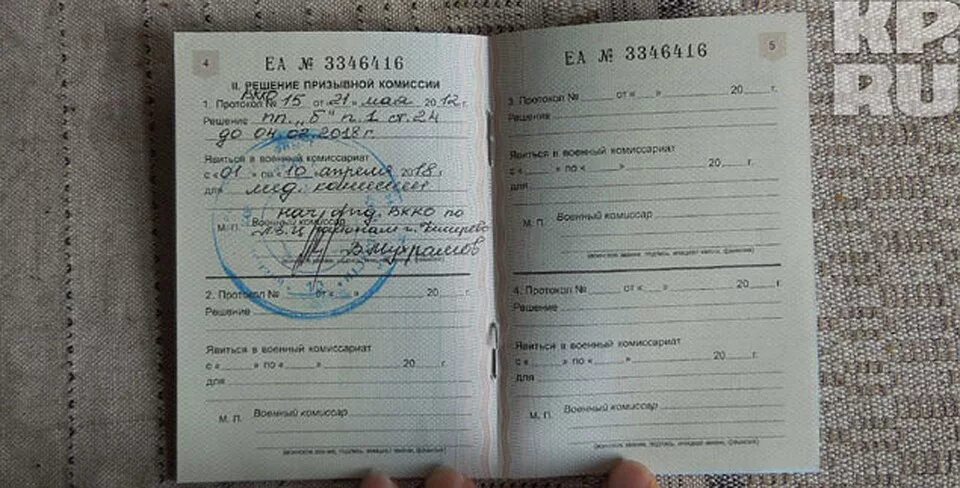 KP.
RU
4
ЕА № 3346416
II. РЕШЕНИЕ ПРИЗЫВНОЙ КОМИССИИ
ВКО
1. Протокол № 15 от «21» мая 2012 г.
Решение пп. „Б" п.1 ст.24
до 04.02.2018 г.
Явиться в военный комиссариат
с «01» по «10» апреля 2018 г.
для мед. комиссии
нач. отд. ВККО по
Военный комиссар
М. П. районам г. Кемерово
2. Протокол № от « » 20 г.
Решение
Явиться в военный комиссариат
с « » по « » 20 г.
для
М. П. Военный комиссар
(воинское звание, подпись, инициал имени, фамилия)
5
ЕА № 3346416
3. Протокол № от « » 20 г.
Решение
Явиться в военный комиссариат
с « » по « » 20 г.
для
М. П. Военный комиссар
(воинское звание, подпись, инициал имени, фамилия)
4. Протокол № от « » 20 г.
Решение
Явиться в военный комиссариат
с « » по « » 20 г.
для
М. П. Военный комиссар
(воинское звание, подпись, инициал имени, фамилия)